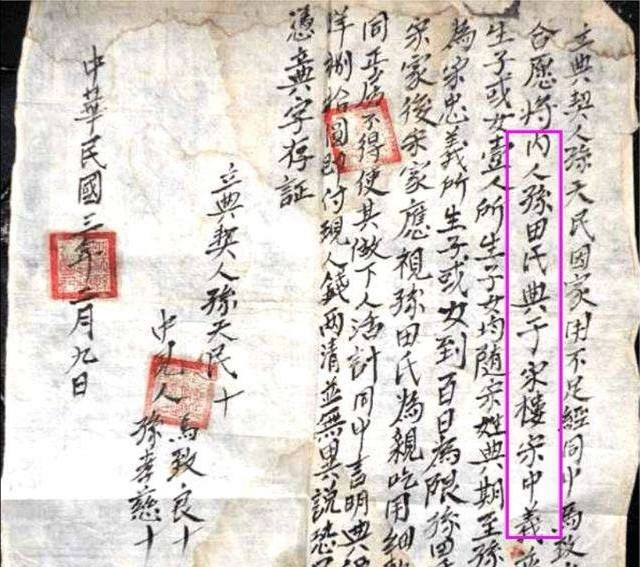 立典契人孫天民因家用不足經同中馬致
合愿將內人孫田氏典于宋樓宋中義
生子或女壹人所生子女均随宗姓典期至孫
為宋忠義所生子或女到百日為限孫田
宋家後宋家應視孫田氏為親吃用
同正房不得使其做下人活計同中言明典
洋捌拾圓即付現人錢两清並無異説恐
憑立典字存証
立典契人孫天民十
中見人馬致良十
孫孝慈十
中華民國三年二月九日